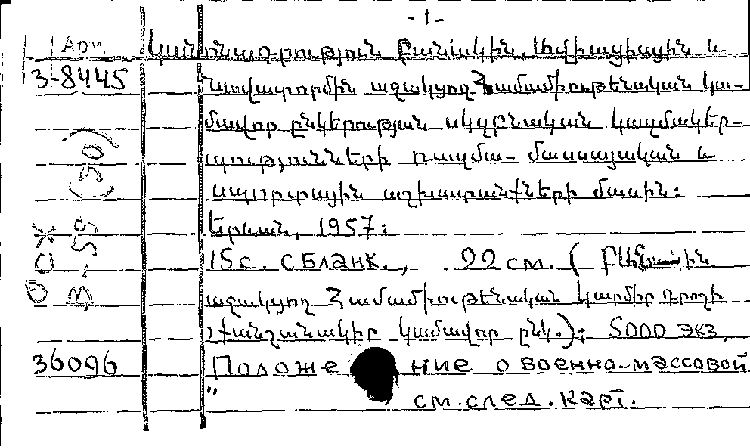 -1-
Арм. Կանոնադրություն բանակին, ավիացիային և
3-8445 նավատորմին աջակցող Համամիութենական կա-
մավոր ընկերության սկզբնական կազմակեր-
պությունների ռազմա-մասսայական և
սպորտային աշխատանքների մասին:
Երևան, 1957:
15с. с бланк., 22 см. ( բանակին
աջակցող Համամիութենական կարմիր դրոշի
շքանշանակիր կամավոր ընկ.): 5000 экз.
36096 Положение о военно-массовой
" см. след. карт.